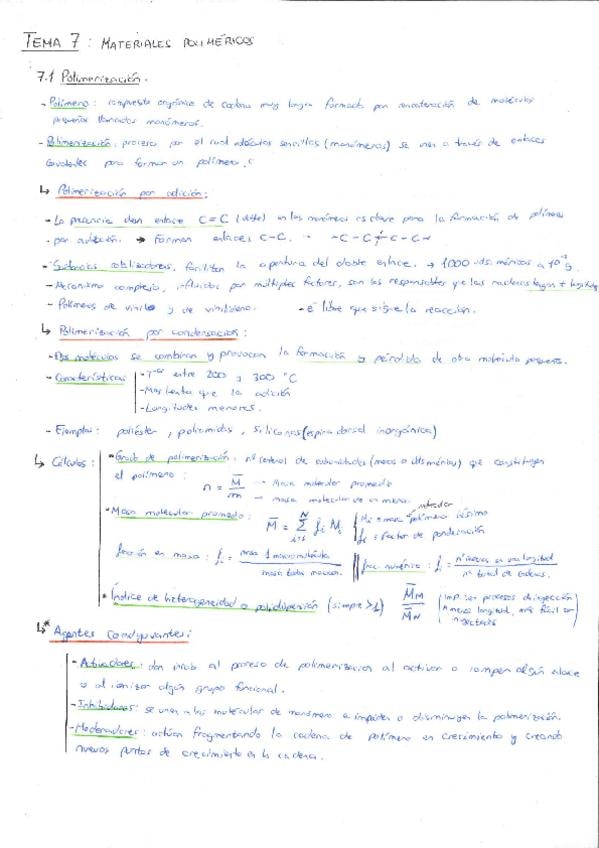 TEMA 7 : MATERIALES POLIMÉRICOS
7.1 Polimerización.
- Polímero : compuesto orgánico de cadena muy larga formado por concatenación de moléculas
pequeñas llamadas monómeros.
- Polimerización: proceso por el cual moléculas sencillas (monómeros) se unen a través de enlaces
covalentes para formar un polímero.
↳ Polimerización por adición:
- La presencia de un enlace C=C (doble) en los monómeros es clave para la formación de polímeros
por adición. → Forman enlaces C-C. -C-C-C-C-
- Sustancias catalizadoras, facilitan la apertura del doble enlace. → 1000 uds. méricas a
- Mecanismo complejo, influidos por múltiples factores, son los responsables que las cadenas tengan ≠ longitud
- Polímeros de vinilo y de vinilideno. - e⁻ libre que sigue la reacción.
↳ Polimerización por condensación :
- Dos moléculas se combinan y provocan la formación y pérdida de otra molécula pequeña.
- Características - Tas entre 200 y 300 °C
- Mas lenta que la adición
- Longitudes menores.
- Ejemplos: poliéster, poliamidas, siliconas (espina dorsal inorgánica)
↳ Cálculos : - Grado de polimerización: nº total de subunidades (meros o uds méricas) que constituyen
el polímero : n = M̄/m → Masa molecular promedio
→ masa molecular de un mero.
- Masa molecular promedio : M̄ = Σ fi Mi Mi = masa polímero iésimo
fi = factor de ponderación
fracción en masa : fi = masa 1 macromolécula / masa todas macrom. frac. numérica : fi = nº meros en una longitud / nº total de cadenas.
- Índice de heterogeneidad o polidispersión (siempre >1) M̄M / M̄N Imp. en procesos de inyección
A menor longitud, más fácil ser
inyectados
↳ Agentes coadyuvantes :
- Activadores: dan inicio al proceso de polimerización al activar o romper algún enlace
o al ionizar algún grupo funcional.
- Inhibidores: se unen a las moléculas de monómero e impiden o disminuyen la polimerización.
- Moderadores : actúan fragmentando la cadena de polímero en crecimiento y creando
nuevos puntos de crecimiento en la cadena.